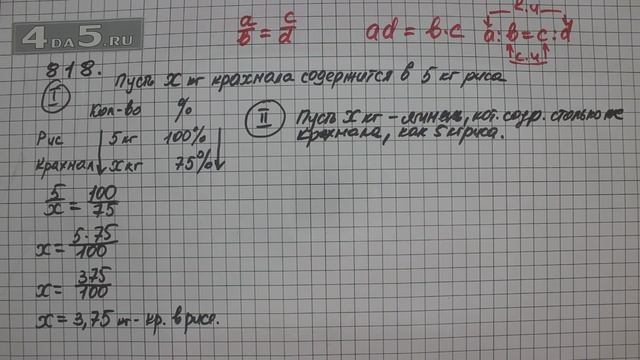 4DA5.RU
a/b = c/d ad = b·c к.ч a:b=c:d с.ч
818. Пусть х кг крахмала содержится в 5 кг риса
I
Кол-во %
Рис 5 кг 100%
Крахмал х кг 75%
5/x = 100/75
x = 5·75/100
x = 375/100
x = 3,75 кг - кр. в рисе.
II Пусть х кг - ячмень, кот. содр. столько же
крахмала, как 5 кг риса.